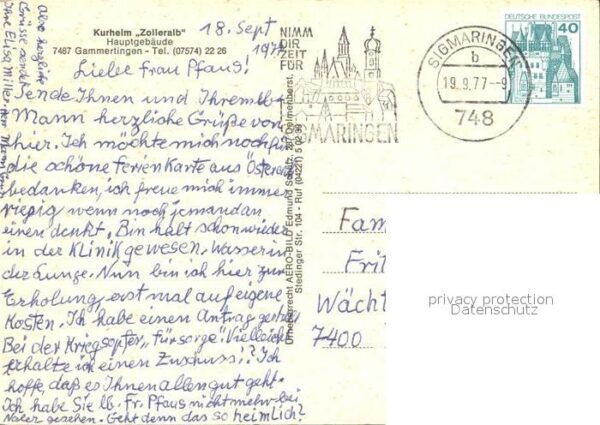 Kurheim „Zolleralb"
Hauptgebäude
7487 Gammertingen - Tel. (07574) 22 26
18. Sept
1977
Liebe Frau Pfaus!
Sende Ihnen und Ihrem lb.
Mann herzliche Grüße von
hier. Ich möchte mich noch für
die schöne Ferienkarte aus Österr
bedanken, ich freue mich immer
riesig wenn noch jemand an
einen denkt. Bin halt schon wieder
in der Klinik gewesen. Wasser in
der Lunge. Nun bin ich hier zur
Erholung, erst mal auf eigene
Kosten. Ich habe einen Antrag gestellt
Bei der Kriegsopfer„fürsorge". Vielleicht
erhalte ich einen Zuschuss!? Ich
hoffe, daß es Ihnen allen gut geht.
Ich habe Sie lb. Fr. Pfaus nicht mehr bei
gesehen. Geht denn das so heimlich?
Also herzliche
Grüsse sendet
Ihre Elisa Miller
Urheberrecht AERO-BILD Edmund Schütz, 287 Delmenhorst,
Stedinger Str. 104 - Ruf (04221) 5 02 99
NIMM
DIR
ZEIT
FÜR
SIGMARINGEN
SIGMARINGEN
b
19.9.77-9
748
DEUTSCHE BUNDESPOST
40
Fam
Frit
Wächt
7400
privacy protection
Datenschutz